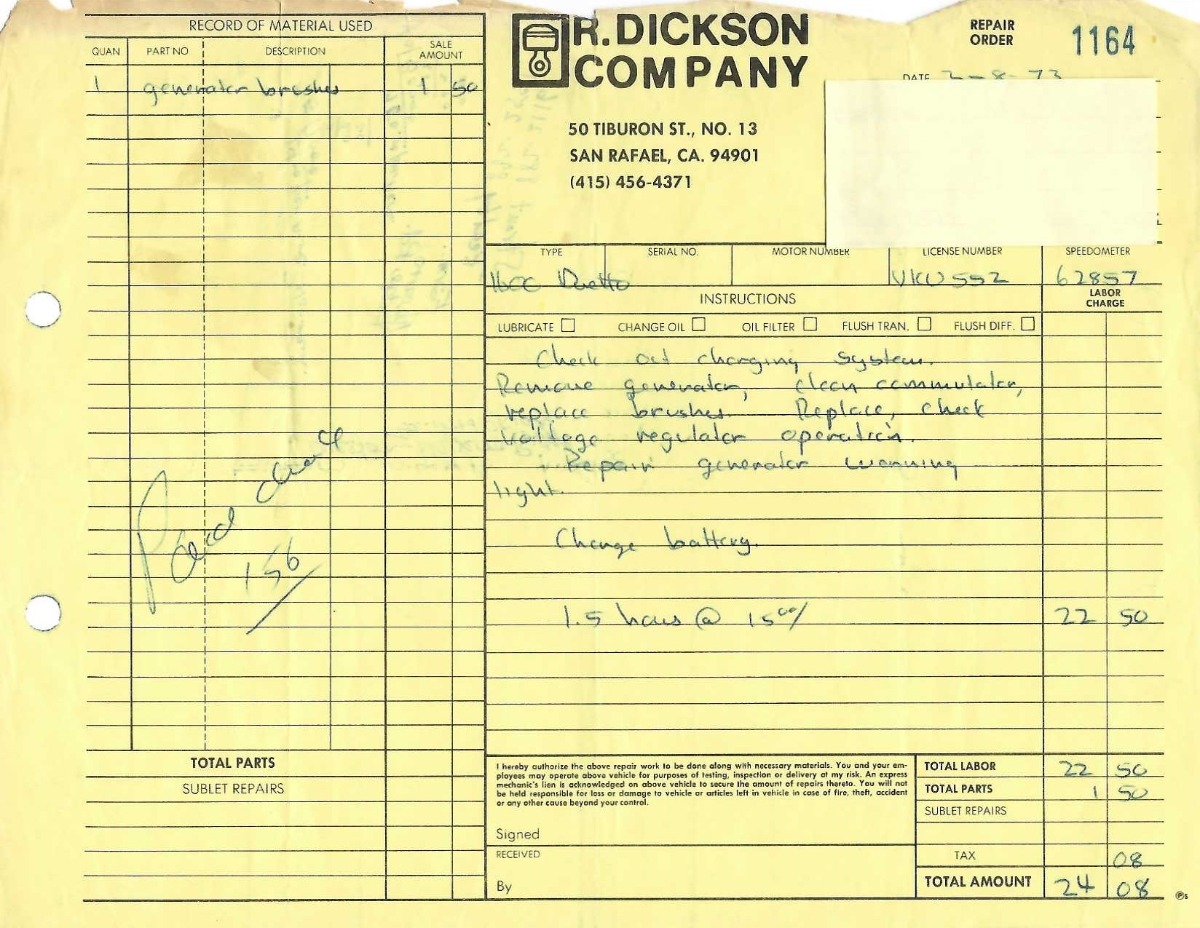 RECORD OF MATERIAL USED
QUAN PART NO DESCRIPTION SALE AMOUNT
1 generator brushes 1 50
Paid check
156
TOTAL PARTS
SUBLET REPAIRS
R. DICKSON
COMPANY
50 TIBURON ST., NO. 13
SAN RAFAEL, CA. 94901
(415) 456-4371
REPAIR
ORDER
1164
DATE 8-73
TYPE SERIAL NO. MOTOR NUMBER LICENSE NUMBER SPEEDOMETER
1600 Duetto VKU 552 62857
INSTRUCTIONS
LABOR
CHARGE
LUBRICATE CHANGE OIL OIL FILTER FLUSH TRAN. FLUSH DIFF.
Check out charging system.
Remove generator, clean commutator,
replace brushes. Replace, check
voltage regulator operation.
Repair generator warning
light.
Change battery.
1.5 hours @ 15 00/ 22 50
I hereby authorize the above repair work to be done along with necessary materials. You and your em-
ployees may operate above vehicle for purposes of testing, inspection or delivery at my risk. An express
mechanic's lien is acknowledged on above vehicle to secure the amount of repairs thereto. You will not
be held responsible for loss or damage to vehicle or articles left in vehicle in case of fire, theft, accident
or any other cause beyond your control.
Signed
RECEIVED
By
TOTAL LABOR 22 50
TOTAL PARTS 1 50
SUBLET REPAIRS
TAX 08
TOTAL AMOUNT 24 08